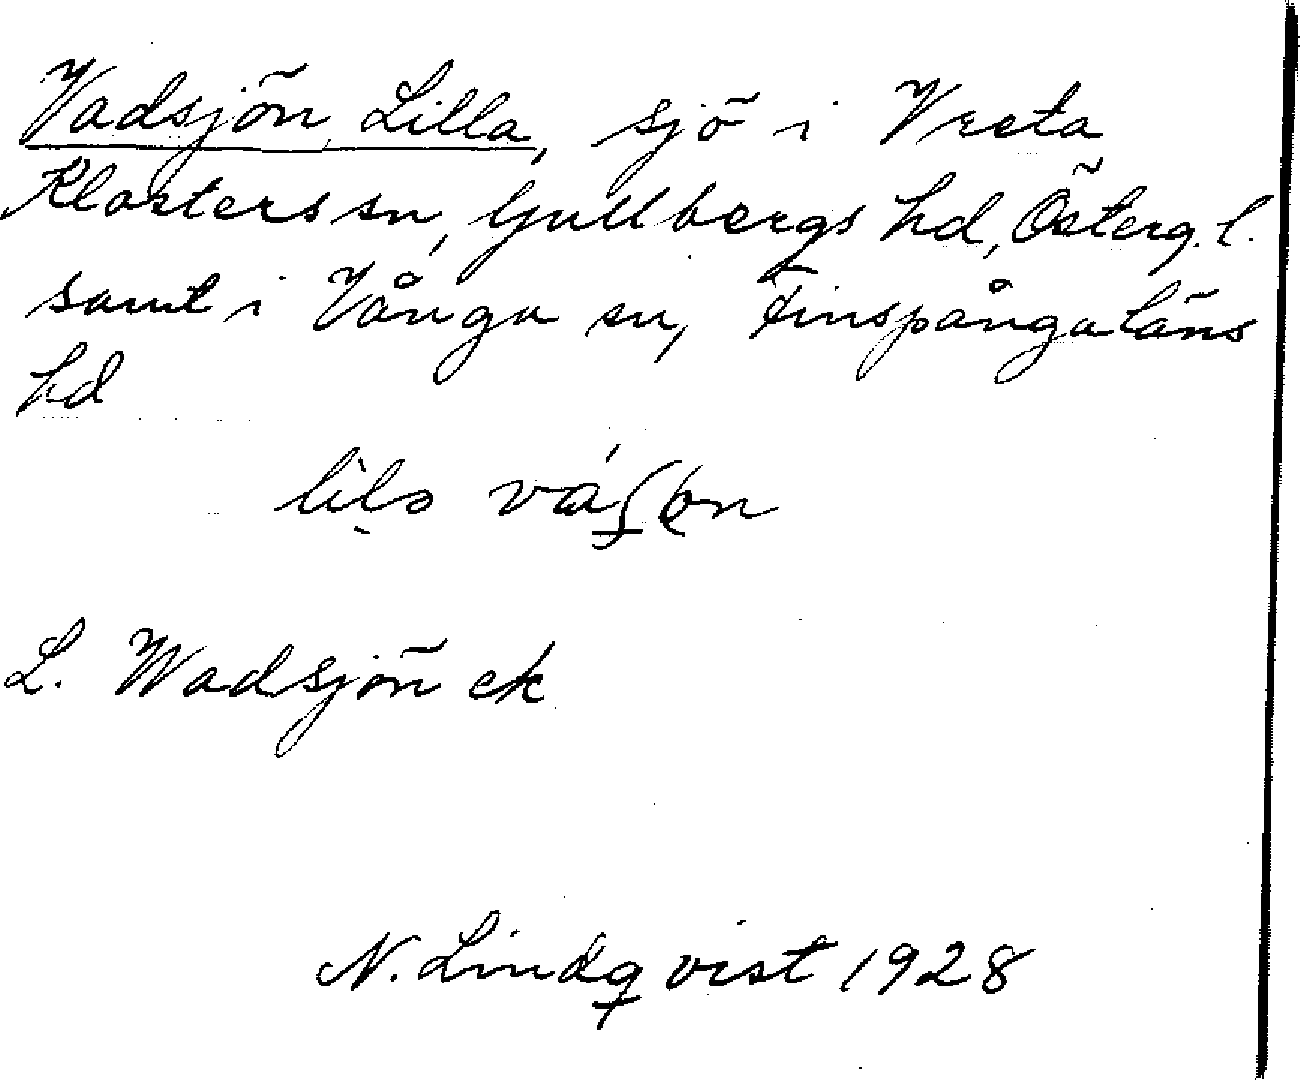 Vadsjön, Lilla, sjö i Vreta
Klosters sn, Gullbergs hd, Österg. l.
samt i Vånga sn, Finspånga läns
hd
L. Wadsjön ek
N. Lindqvist 1928